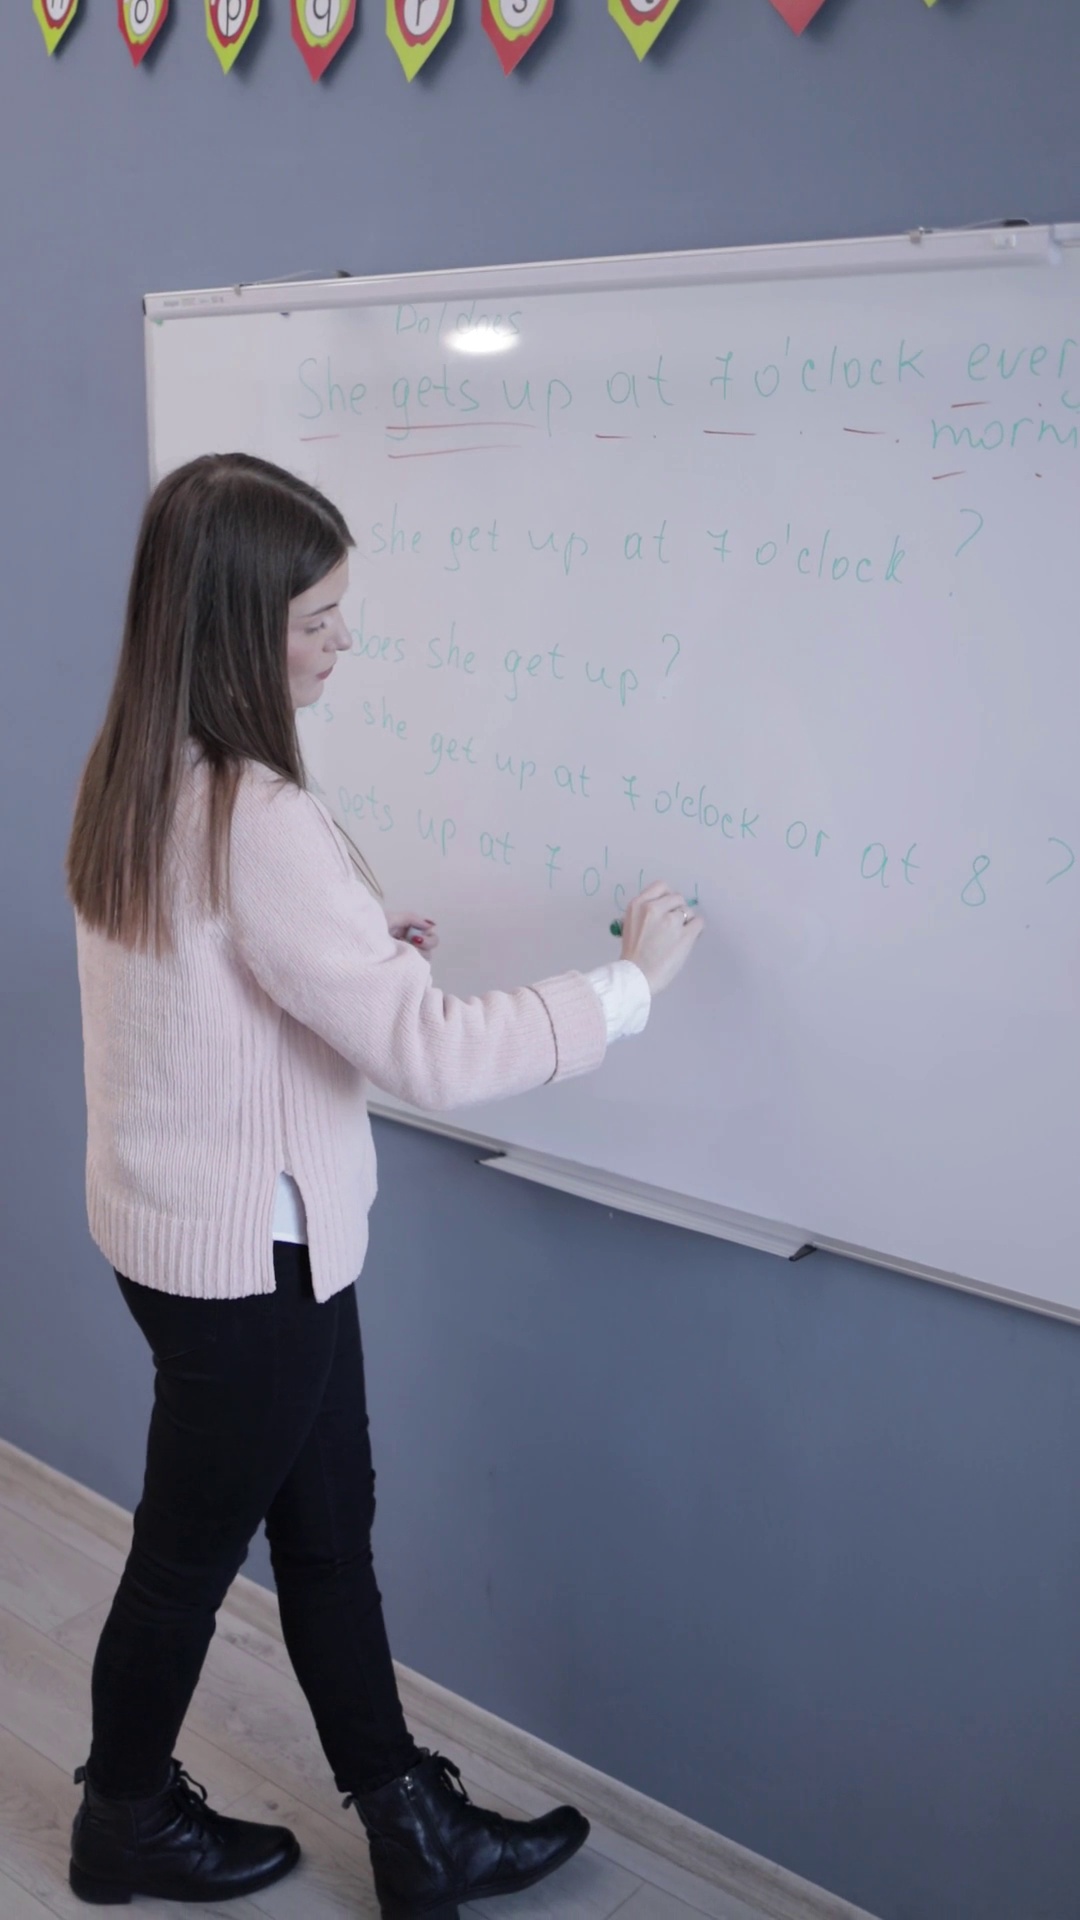 n o p q r s t
Do/does
She gets up at 7 o'clock ever
morni
she get up at 7 o'clock ?
does she get up ?
she get up at 7 o'clock or at 8 ?
gets up at 7